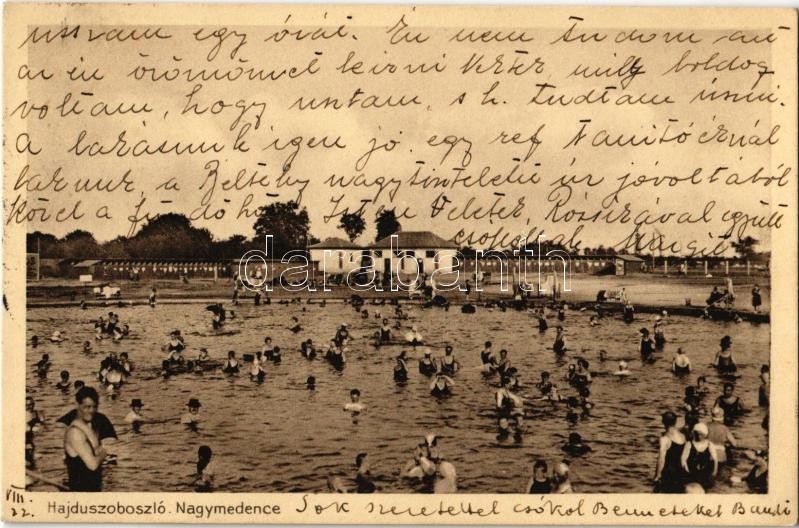 usztam egy órát. Én nem tudom azt
az én örömömet leirni Nektek, mily boldog
voltam, hogy usztam, s h. tudtam úszni.
a lakásunk igen jó egy ref tanitócknál
lakunk, a Zelteky nagytiszteletü úr jóvoltából
közel a fürdőhöz Isten Veletek, Rózsikával együtt
csókollak Margit
darabanth.com
VIII
22.
Hajduszoboszló. Nagymedence
Sok szeretettel csókol Benneteket Bandi